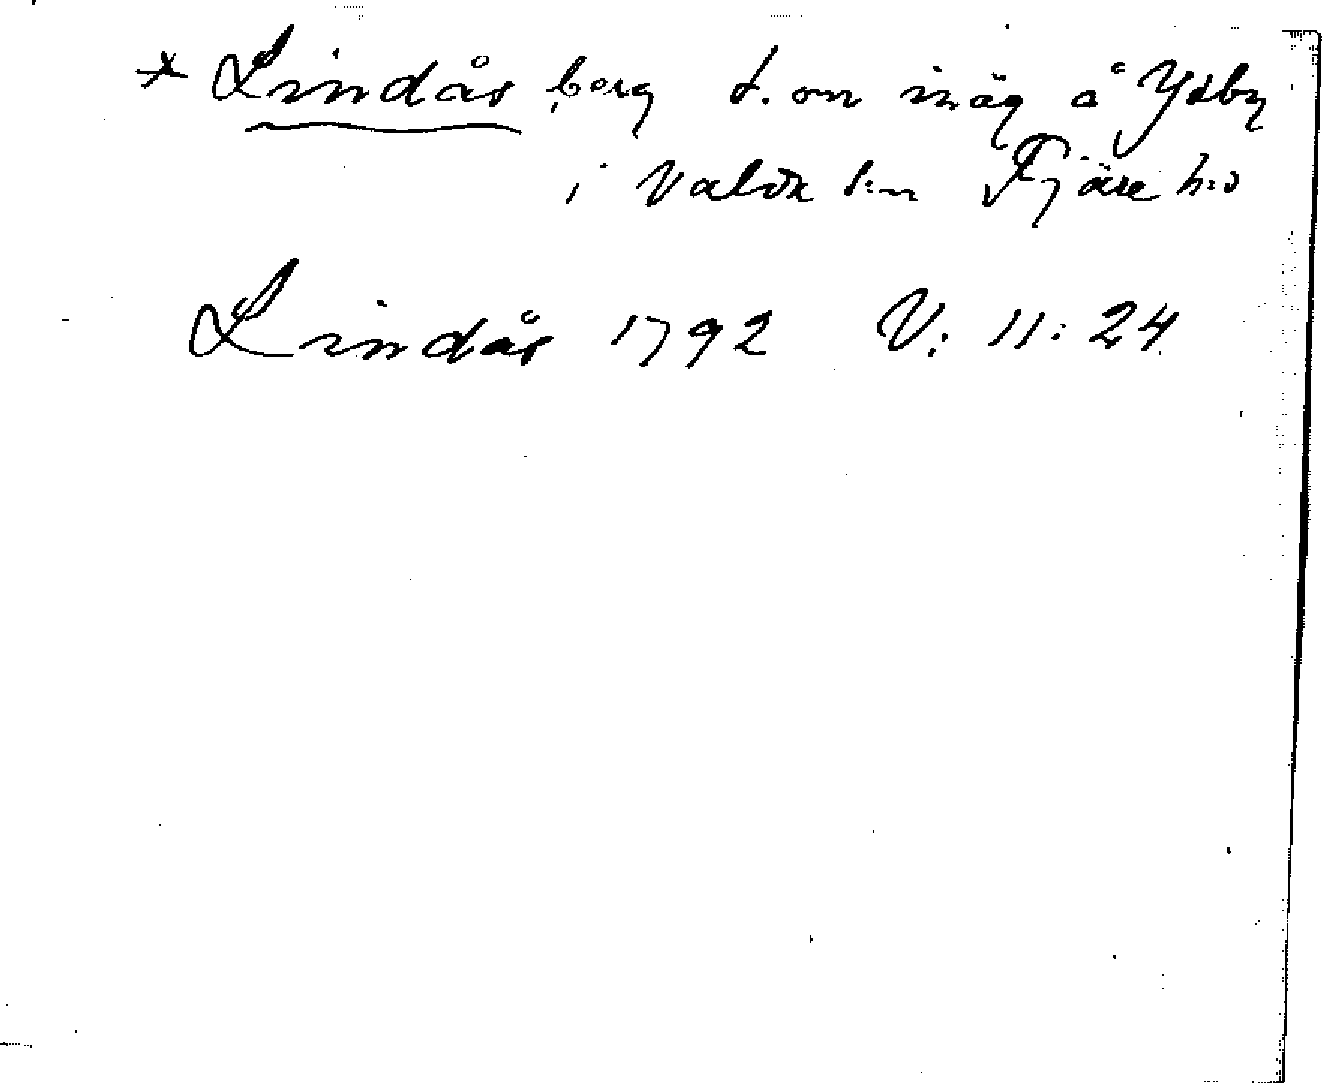 * Lindås berg t. om inäg å Ysby
i Valda s:n Fjäre h:d
Lindås 1792 V: 11:24